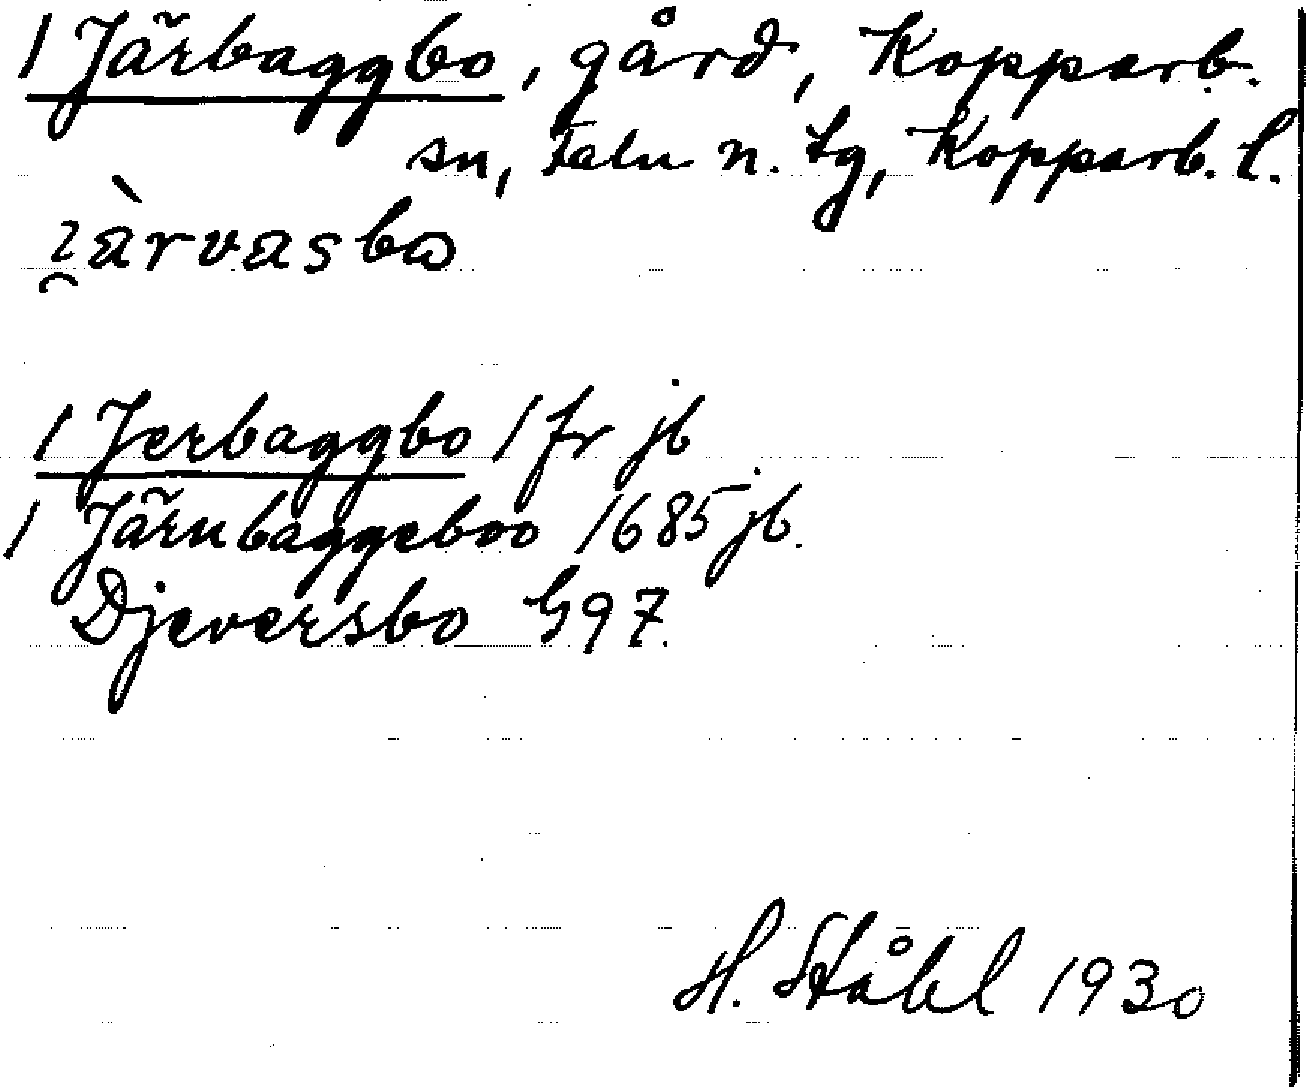 1 Järbaggbo, gård, Kopparb.
sn, Falu n. tg, Kopparb. l.
i̯àrvasbo
1 Jerbaggbo 1 fr jb
1 Järnbaggeboo 1685 jb.
Djeversbo G97.
H. Ståhl 1930